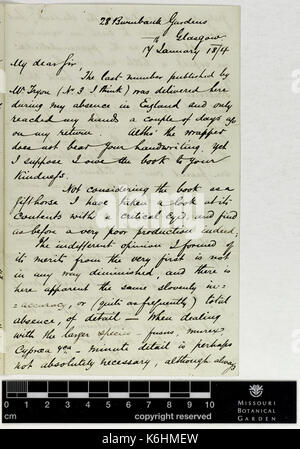 28 Burnbank Gardens
Glasgow
17 January 1874
My dear Sir,
The last number published by
Mr Tryon (No 3 I think) was delivered here
during my absence in England and only
reached my hands a couple of days ago
on my return. Altho' the wrapper
does not bear your handwriting, yet
I suppose I owe the book to your
kindness.
Not considering the book as a
gift horse I have taken a look at its
contents with a critical eye, and find
as before a very poor production indeed.
The indifferent opinion I formed of
its merits from the very first is not
in any way diminished, and there is
here apparent the same slovenly in=
=accuracy, or (quite as frequently) total
absence, of detail — When dealing
with the larger species — fusus, murex
Cypraea &c — minute detail is perhaps
not absolutely necessary, although always
alamy
0 1 2 3 4 5 6 7 8 9 10
cm
copyright reserved
MISSOURI
BOTANICAL
GARDEN
alamy
Image ID: K6HMEW
www.alamy.com